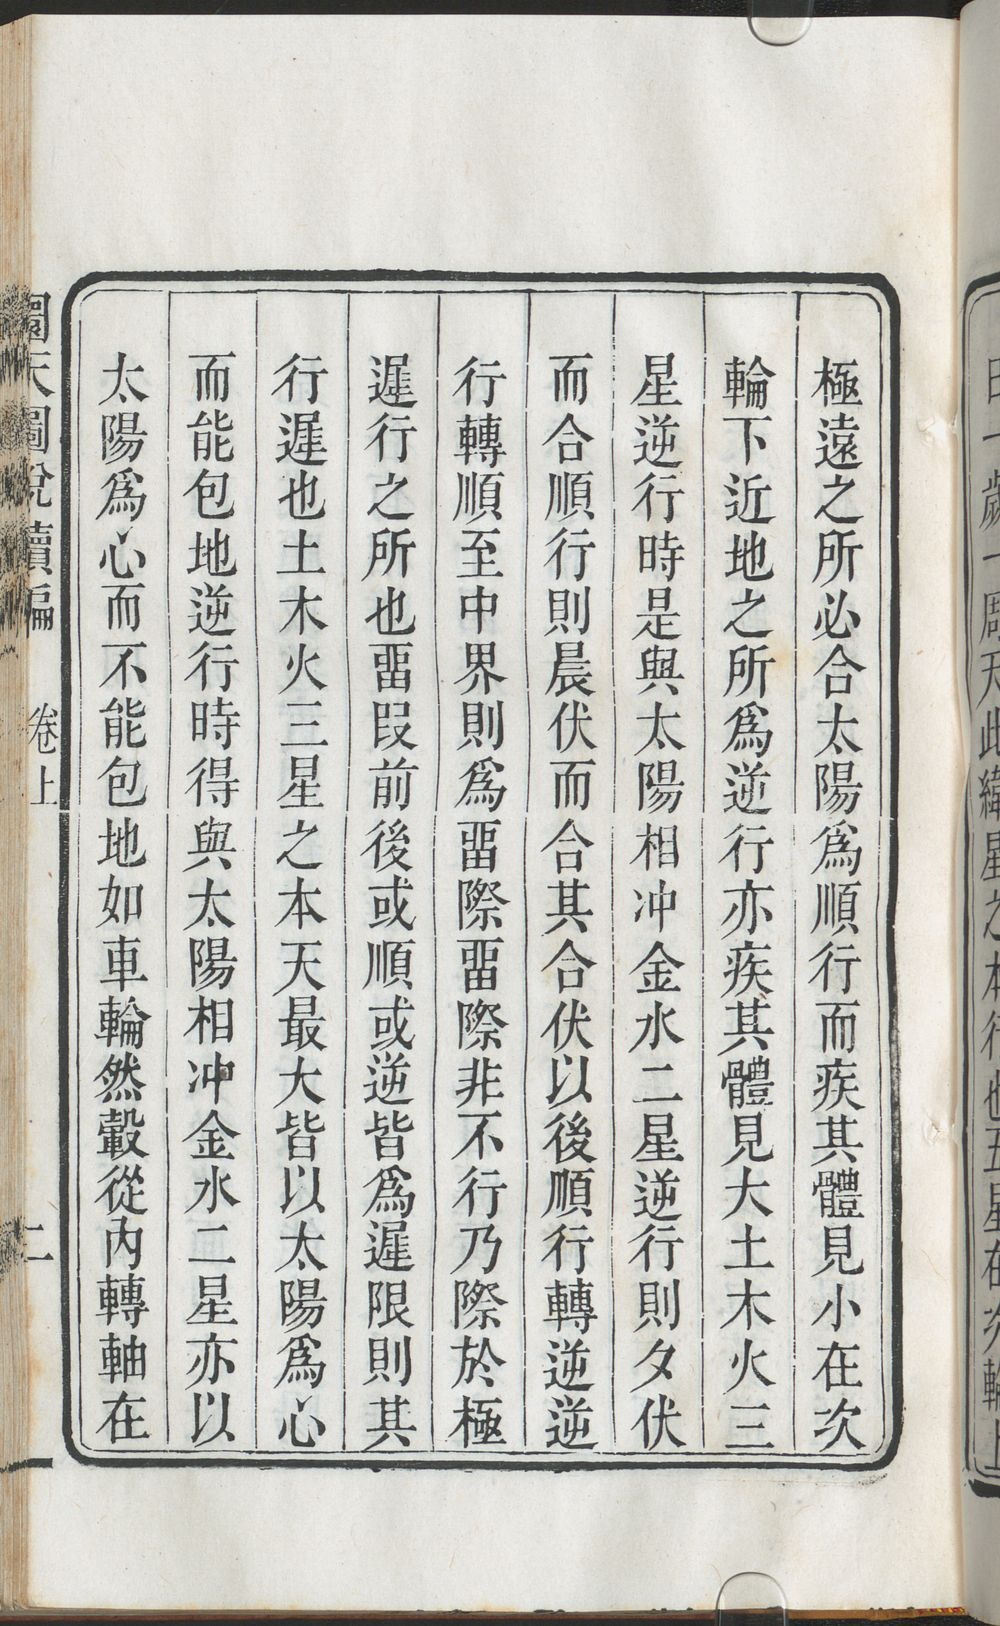 極遠之所必合太陽爲順行而疾其體見小在次
輪下近地之所爲逆行亦疾其體見大土木火三
星逆行時是與太陽相冲金水二星逆行則夕伏
而合順行則晨伏而合其合伏以後順行轉逆逆
行轉順至中界則爲畱際畱際非不行乃際於極
遲行之所也畱段前後或順或逆皆爲遲限則其
行遲也土木火三星之本天最大皆以太陽爲心
而能包地逆行時得與太陽相冲金水二星亦以
太陽爲心而不能包地如車輪然轂從內轉軸在
圜天圖說續編 卷上 二